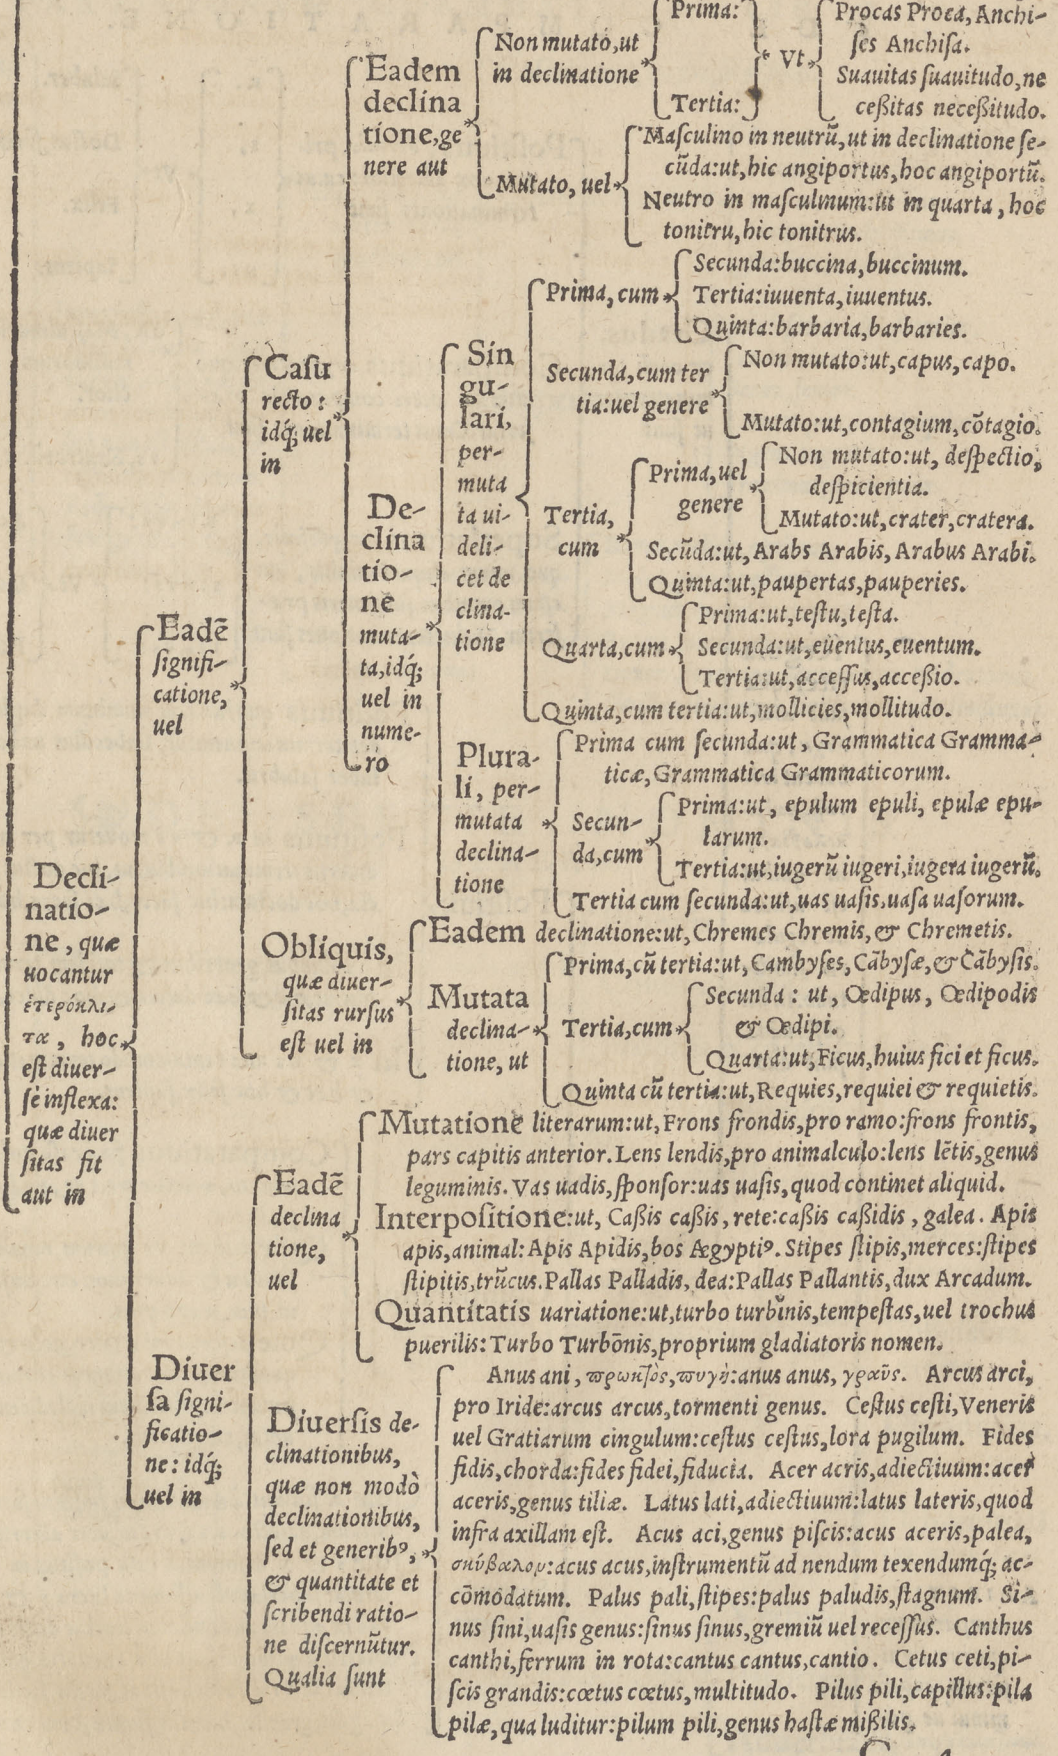 Declina-
natio-
ne, quæ
uocantur
ἑτερόκλι-
τα, hoc
est diuer-
sè inflexa:
quæ diuer
sitas fit
aut in
Eadē
signifi-
catione,
uel
Casu
recto:
idq́; uel
in
Eadem
declina
tione, ge
nere aut
Non mutato, ut
in declinatione
Prima:
Tertia:
Vt
Procas Proca, Anchi-
ses Anchisa.
Suauitas suauitudo, ne
ceßitas neceßitudo.
Mutato, uel
Masculino in neutrū, ut in declinatione se-
cūda: ut, hic angiportus, hoc angiportū.
Neutro in masculinum: ut in quarta, hoc
tonitru, hic tonitrus.
De-
clina
tio-
ne
muta-
ta, idq́;
uel in
nume-
ro
Sin
gu-
lari,
per-
muta
ta ui-
deli-
cet de
clina-
tione
Prima, cum
Secunda: buccina, buccinum.
Tertia: iuuenta, iuuentus.
Quinta: barbaria, barbaries.
Secunda, cum ter
tia: uel genere
Non mutato: ut, capus, capo.
Mutato: ut, contagium, cōtagio.
Tertia,
cum
Prima, uel
genere
Non mutato: ut, despectio,
despicientia.
Mutato: ut, crater, cratera.
Secūda: ut, Arabs Arabis, Arabus Arabi.
Quinta: ut, paupertas, pauperies.
Quarta, cum
Prima: ut, testu, testa.
Secunda: ut, euentus, euentum.
Tertia: ut, accessus, acceßio.
Quinta, cum tertia: ut, mollicies, mollitudo.
Plura-
li, per-
mutata
declina-
tione
Prima cum secunda: ut, Grammatica Gramma-
ticæ, Grammatica Grammaticorum.
Secun-
da, cum
Prima: ut, epulum epuli, epulæ epu-
larum.
Tertia: ut, iugerū iugeri, iugera iugerū.
Tertia cum secunda: ut, uas uasis, uasa uasorum.
Obliquis,
quæ diuer-
sitas rursus
est uel in
Eadem declinatione: ut, Chremes Chremis, & Chremetis.
Mutata
declina-
tione, ut
Prima, cū tertia: ut, Cambyses, Cābysæ, & Cābysis.
Tertia, cum
Secunda: ut, Oedipus, Oedipodis
& Oedipi.
Quarta: ut, Ficus, huius fici et ficus.
Quinta cū tertia: ut, Requies, requiei & requietis.
Diuer
sa signi-
ficatio-
ne: idq́;
uel in
Eadē
declina
tione,
uel
Mutatione literarum: ut, Frons frondis, pro ramo: frons frontis,
pars capitis anterior. Lens lendis, pro animalculo: lens lētis, genus
leguminis. Vas uadis, sponsor: uas uasis, quod continet aliquid.
Interpositione: ut, Caßis caßis, rete: caßis caßidis, galea. Apis
apis, animal: Apis Apidis, bos Ægyptiꝰ. Stipes stipis, merces: stipes
stipitis, trūcus. Pallas Palladis, dea: Pallas Pallantis, dux Arcadum.
Quantitatis uariatione: ut, turbo turbĭnis, tempestas, uel trochus
puerilis: Turbo Turbōnis, proprium gladiatoris nomen.
Diuersis de-
clinationibus,
quæ non modò
declinationibus,
sed et generibꝰ,
& quantitate et
scribendi ratio-
ne discernūtur.
Qualia sunt
Anus ani, πρωκτὸς, πυγὴ: anus anus, γραῦς. Arcus arci,
pro Iride: arcus arcus, tormenti genus. Cestus cesti, Veneris
uel Gratiarum cingulum: cestus cestus, lora pugilum. Fides
fidis, chorda: fides fidei, fiducia. Acer acris, adiectiuum: acer
aceris, genus tiliæ. Latus lati, adiectiuum: latus lateris, quod
infra axillam est. Acus aci, genus piscis: acus aceris, palea,
σκύβαλον: acus acus, instrumentū ad nendum texendumq́; ac-
cōmodatum. Palus pali, stipes: palus paludis, stagnum. Si-
nus sini, uasis genus: sinus sinus, gremiū uel recessus. Canthus
canthi, ferrum in rota: cantus cantus, cantio. Cetus ceti, pi-
scis grandis: cœtus cœtus, multitudo. Pilus pili, capillus: pila
pilæ, qua luditur: pilum pili, genus hastæ mißilis.